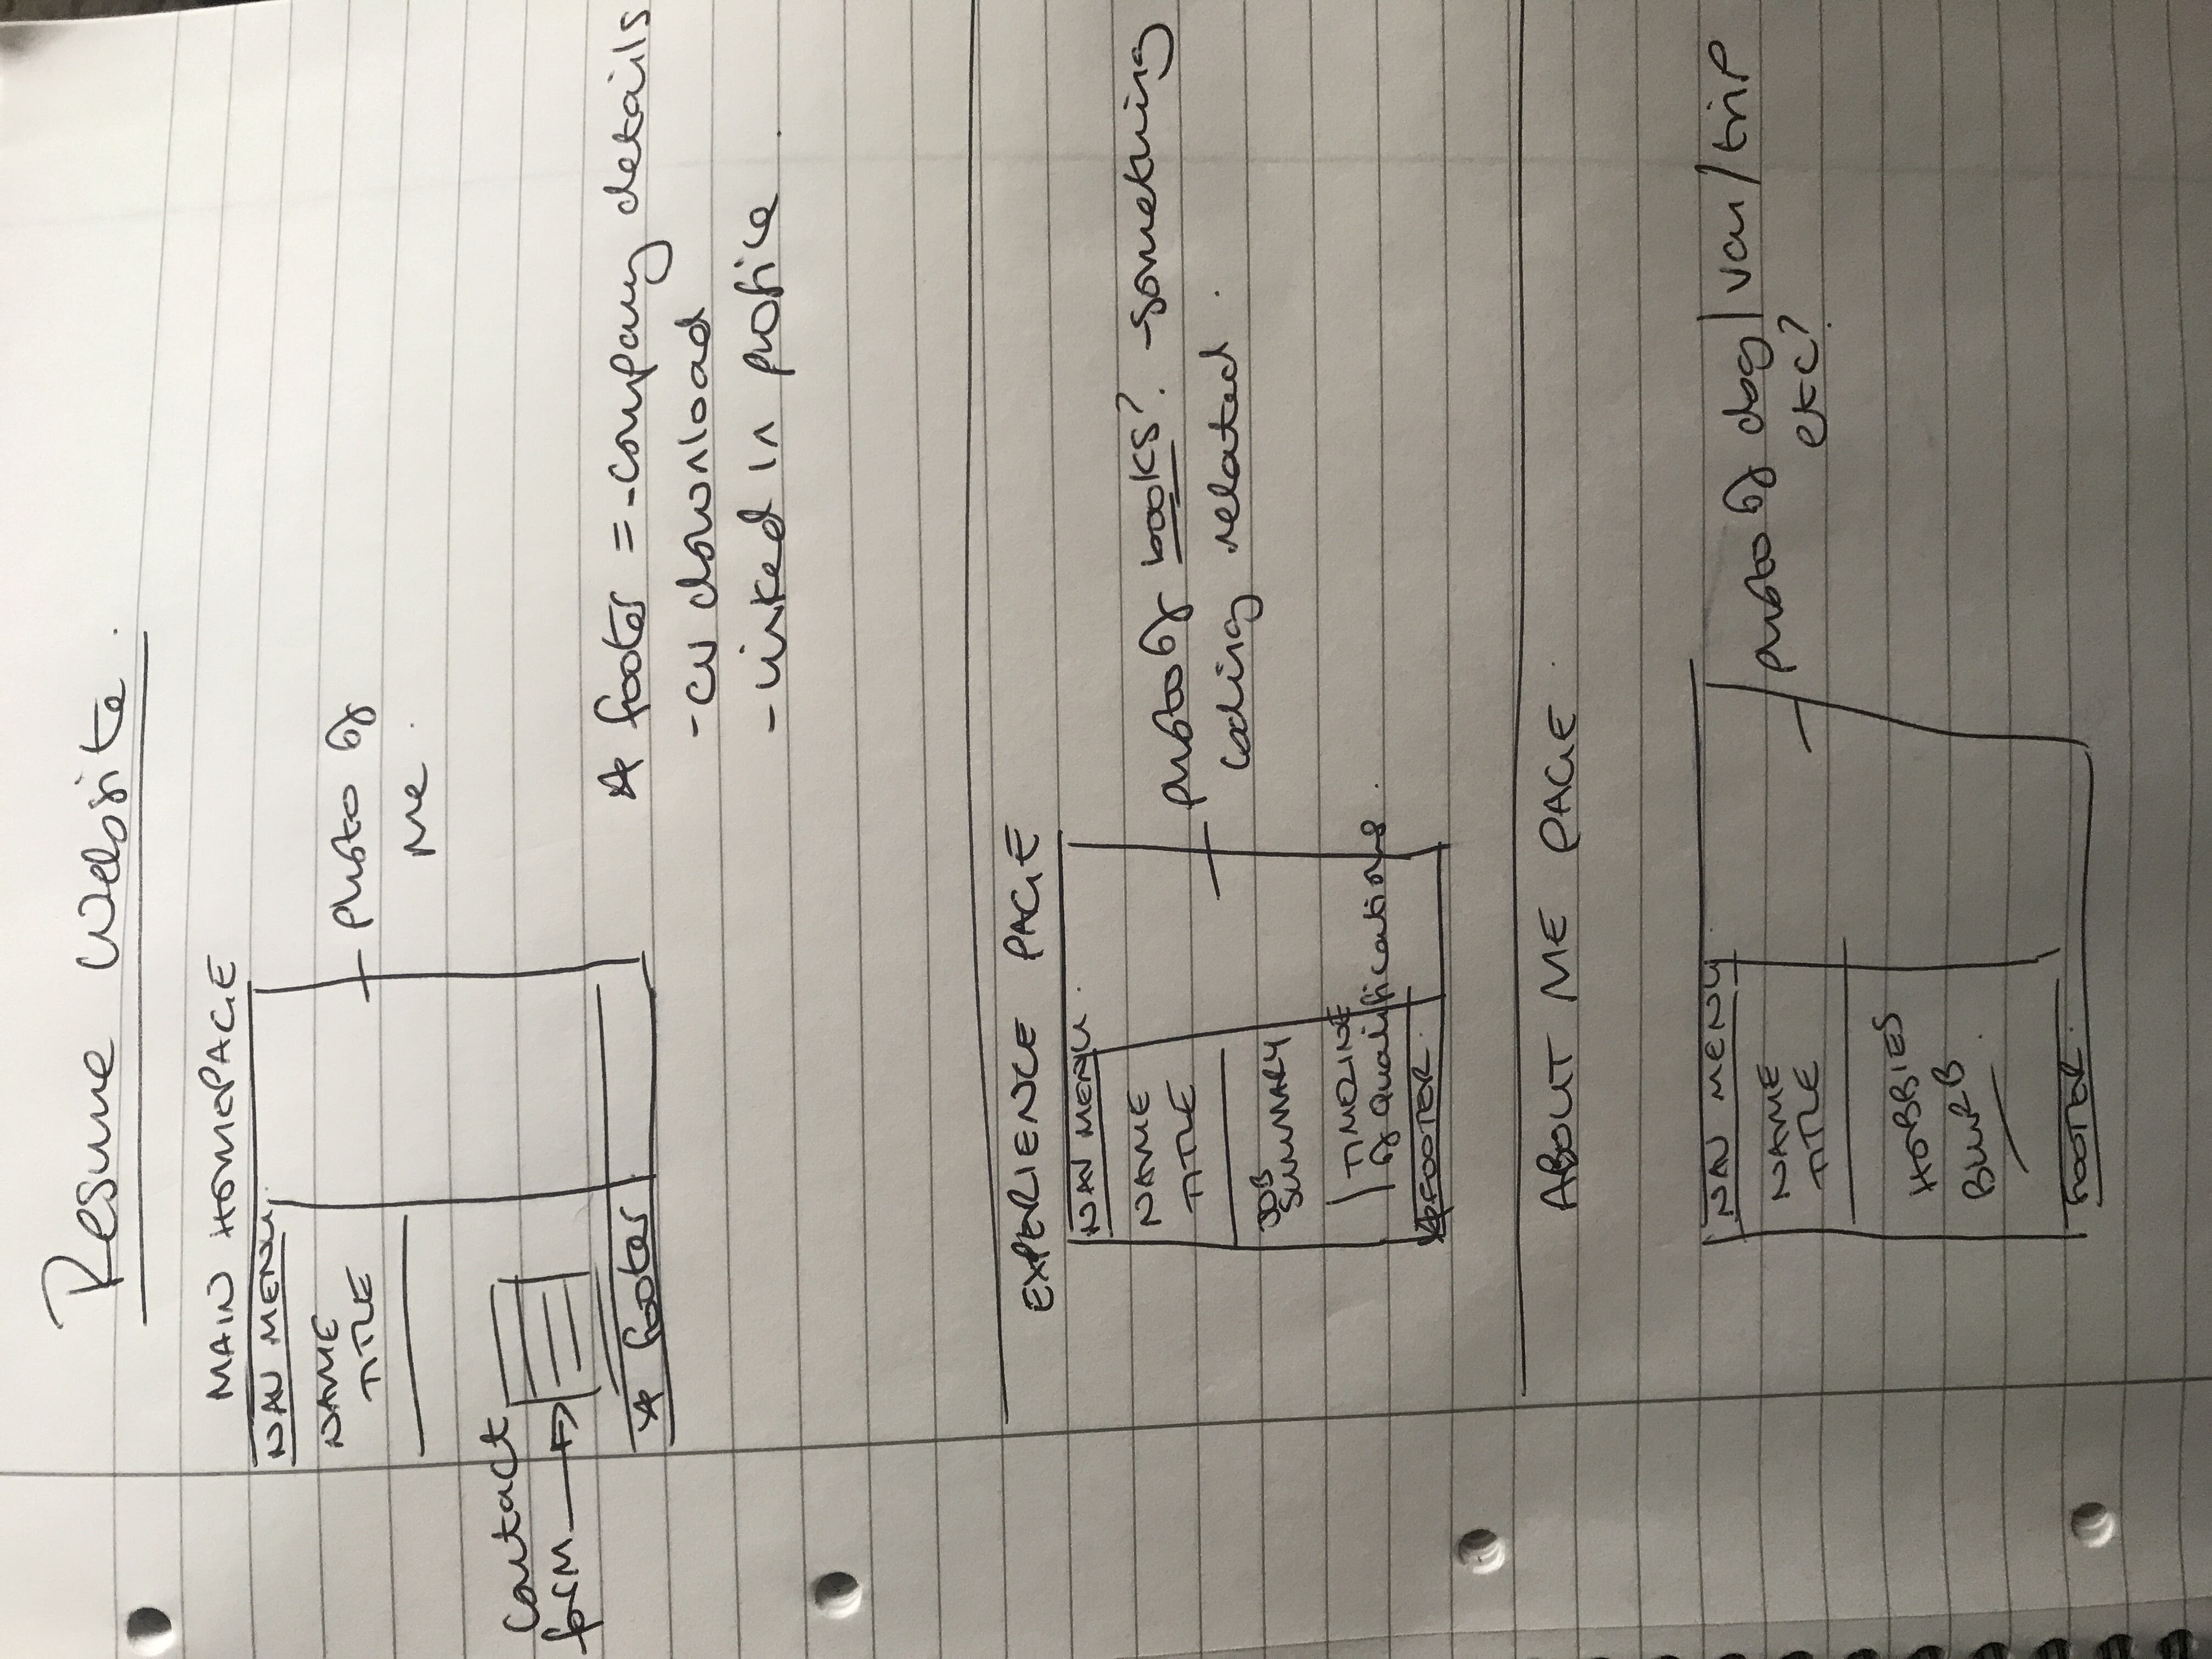 Resume Website.
MAIN HOMEPAGE
NAV MENU
NAME
TITLE
photo of
me.
Contact
form
* footer
* footer = - company details
- cv download
- linked in profile.
EXPERIENCE PAGE
NAV MENU.
NAME
TITLE
photo of books? - something
coding related.
JOB
SUMMARY
TIMELINE
of qualifications.
* FOOTER.
ABOUT ME PAGE.
NAV MENU.
NAME
TITLE
photo of dog/van/trip
etc?
HOBBIES
BLURB.
FOOTER.